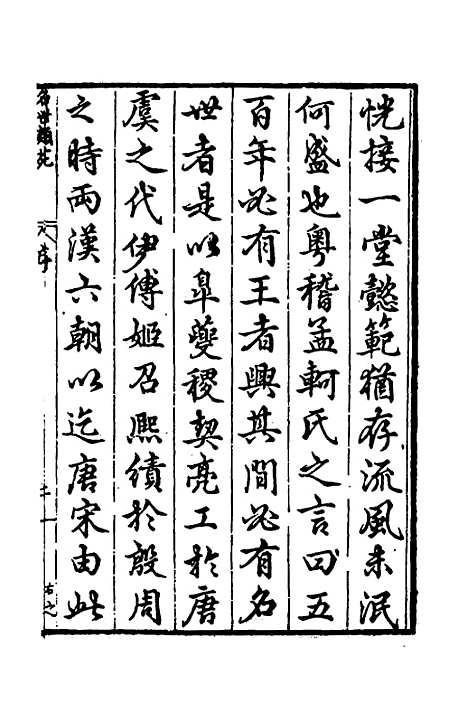 恍接一堂懿範猶存流風未泯
何盛也粵稽孟軻氏之言曰五
百年必有王者興其間必有名
世者是以皐夔稷契亮工於唐
虞之代伊傅姬召熙績於殷周
之時兩漢六朝以迄唐宋由此
名世類苑
序